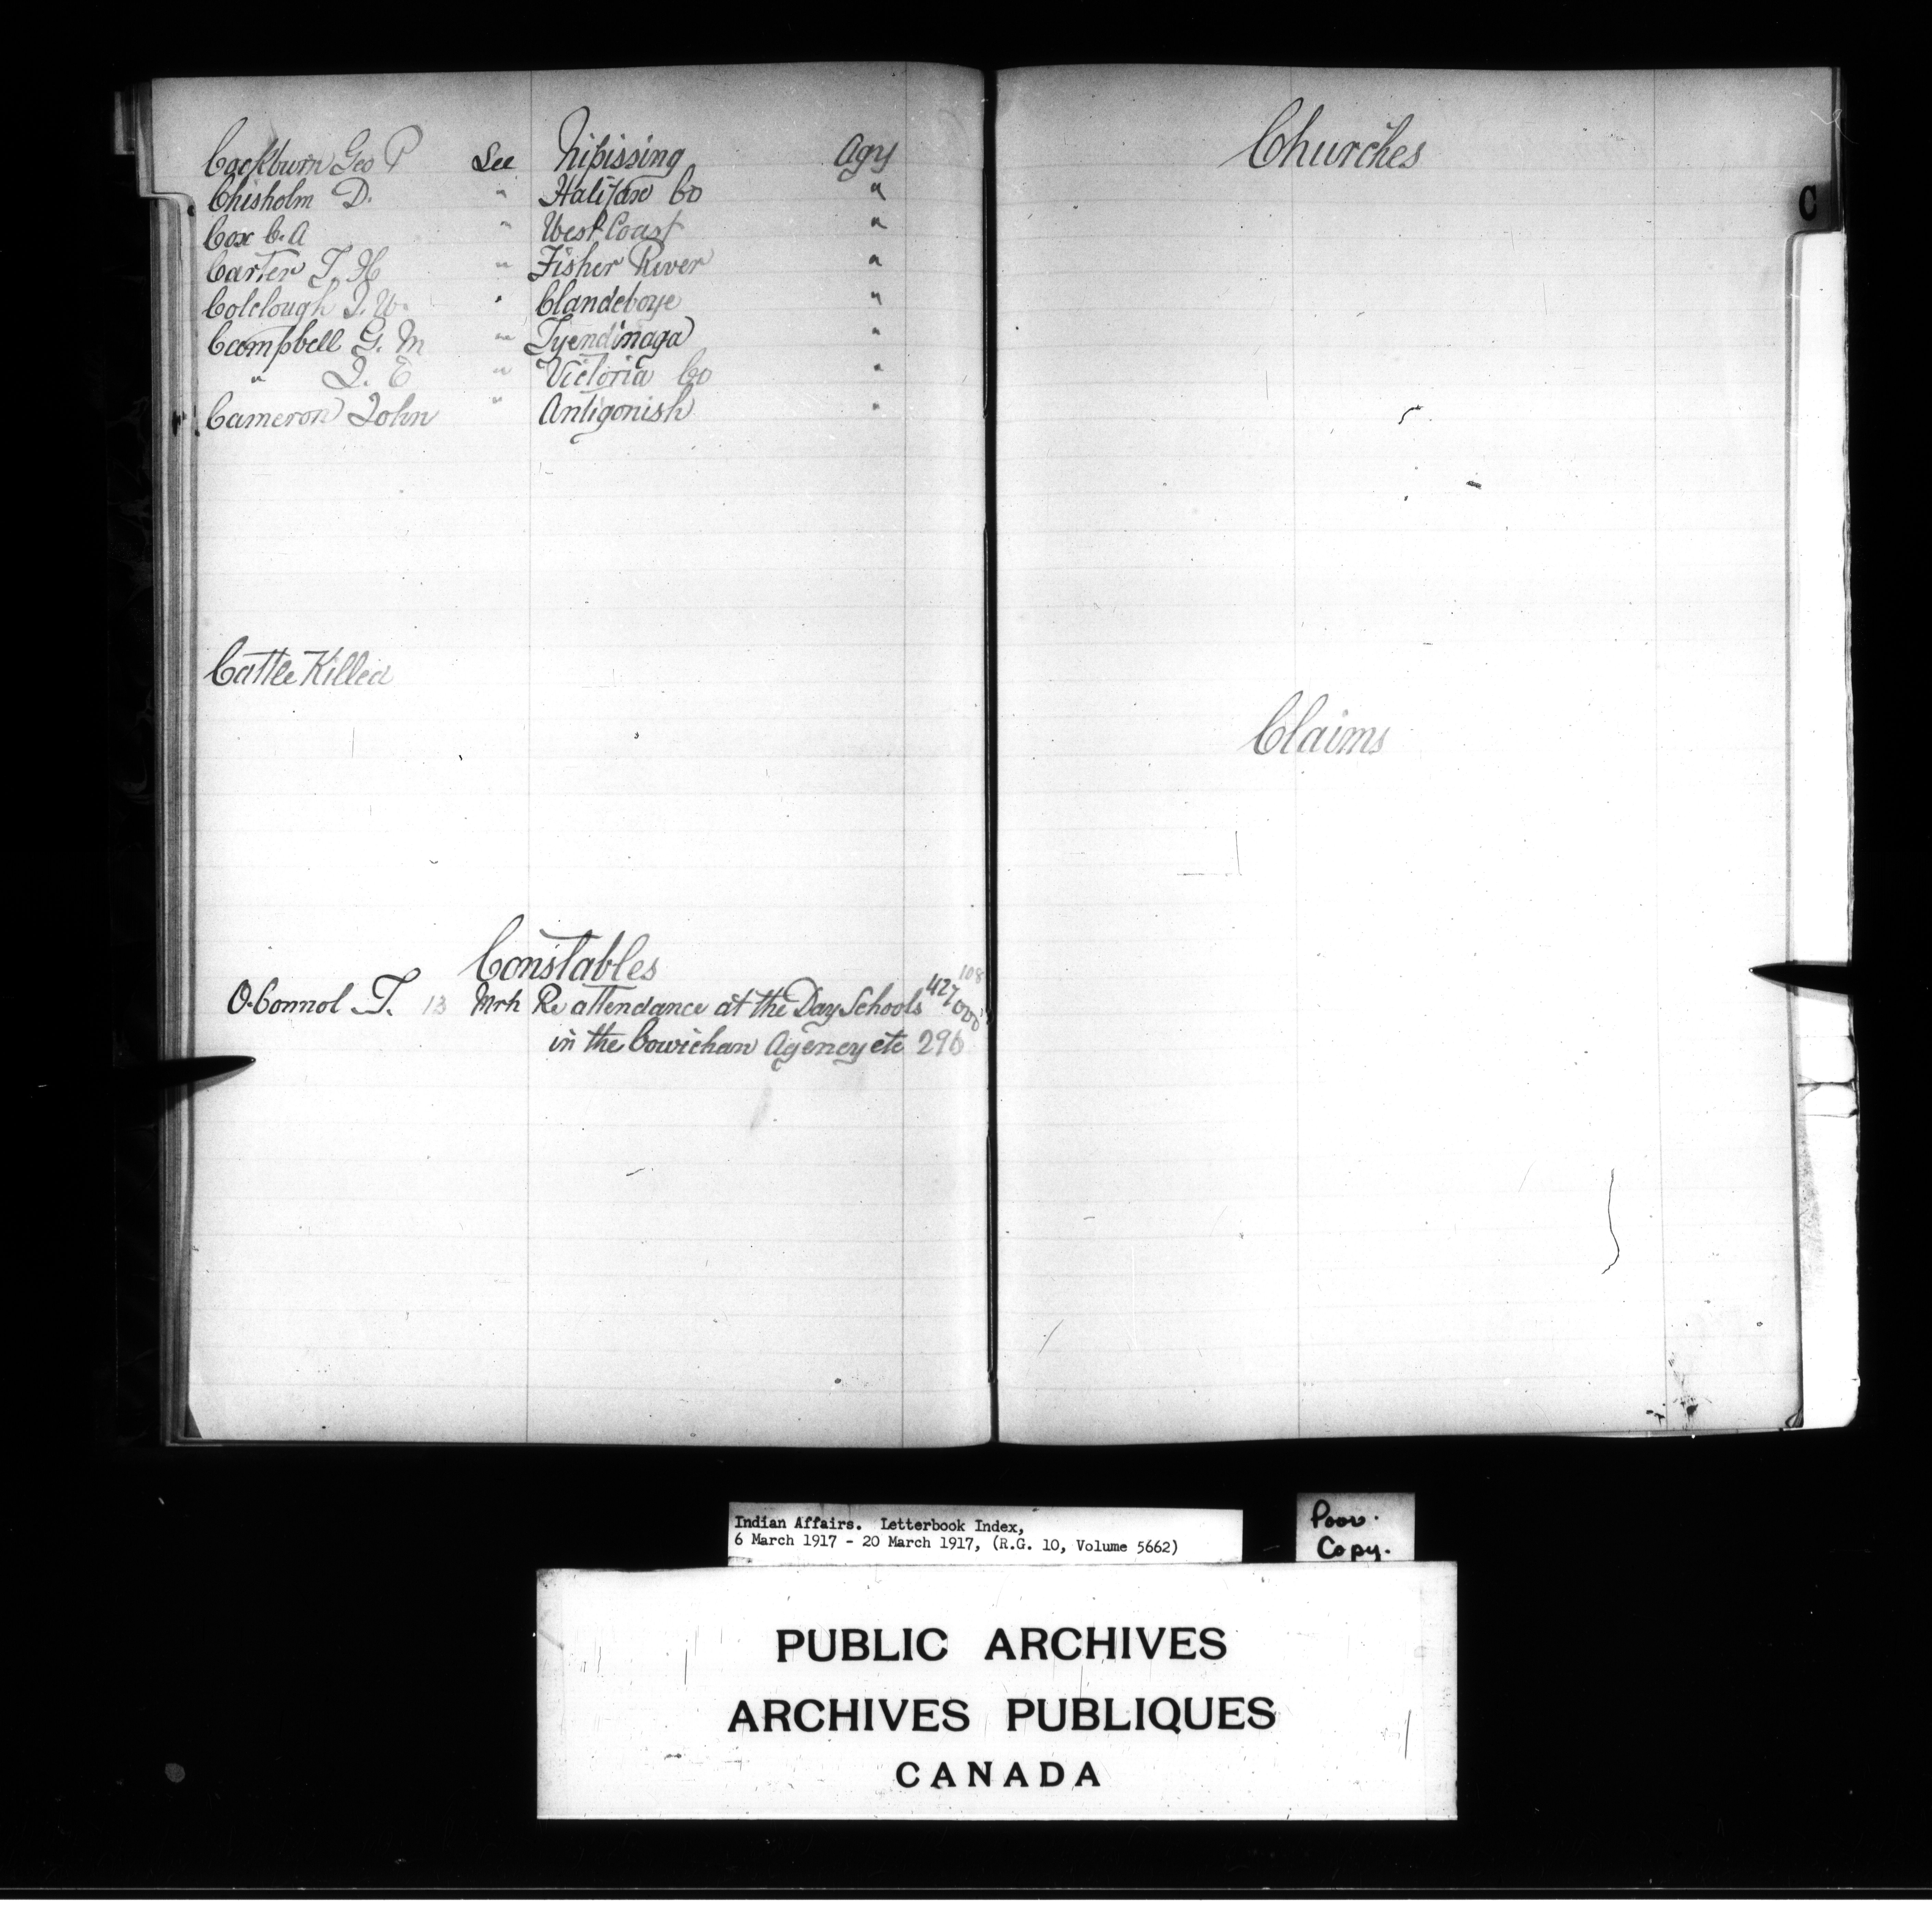 Cockburn Geo P See Nipissing Agy
Chisholm D. " Halifax Co "
Cox C. A " West Coast "
Carter T. H " Fisher River "
Colclough J. W. " Clandeboye "
Campbell G. M " Tyendinaga "
" J. E " Victoria Co "
Cameron John " Antigonish "
Cattle Killed
Constables
O'Connol T. 13 Mrh Re attendance at the Day Schools 427,000 108
in the Cowichan Agency etc 296
Churches
C
Claims
Indian Affairs. Letterbook Index,
6 March 1917 - 20 March 1917, (R.G. 10, Volume 5662)
Poor.
Copy.
PUBLIC ARCHIVES
ARCHIVES PUBLIQUES
CANADA